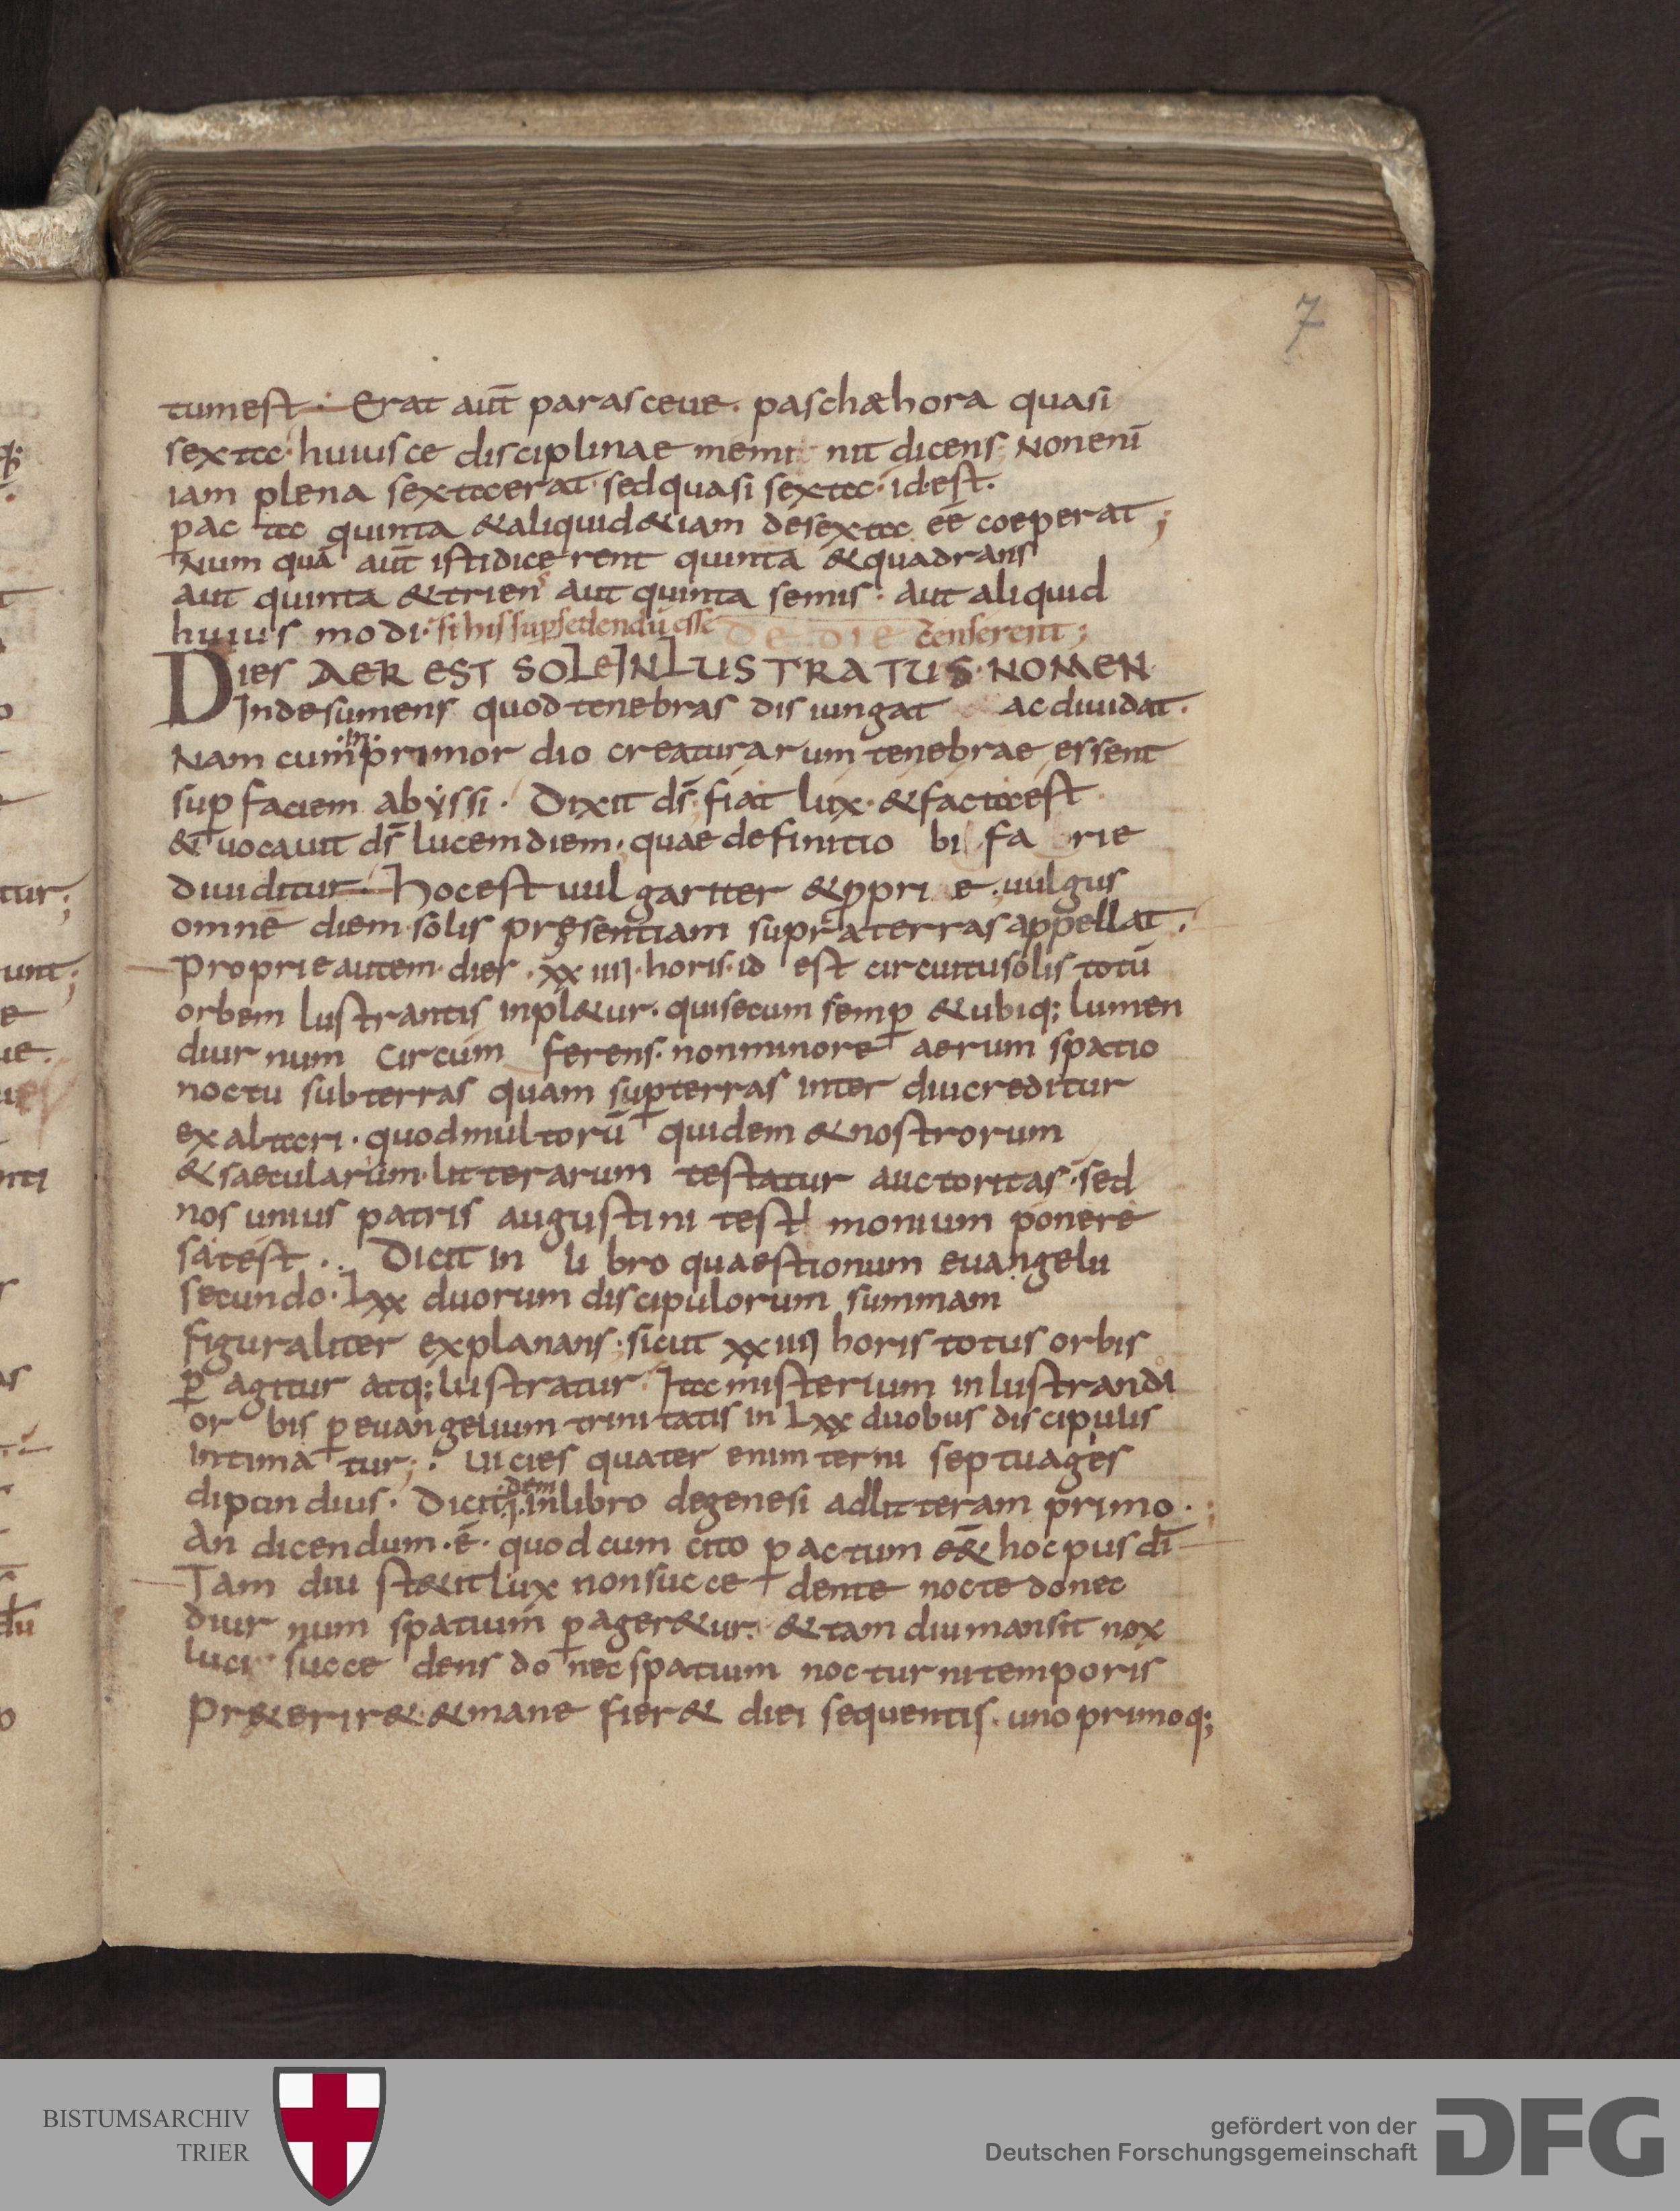 7
tumest · Erat aut̄ parasceue · paschæ hora quasi
sexta · huiusce disciplinae memi nit dicens Non eni̅
iam plena sexta erat · sed quasi sexta · id est ·
pac ta quinta & aliquid & iam de sexta eē coeperat ;
Num quā aut̄ isti dice rent quinta & quadrans
aut quinta & triens aut quinta semis · aut aliquid
huius modi · si his supsedendū esse DE DIE censerent ;
DIES AER EST SOLE INLUSTRATUS · NOMEN
Inde sumens quod tenebras dis iungat ac diuidat ·
Nam cum in primor dio creaturarum tenebrae essent
sup faciem abyssi · Dixit ds̄ fiat lux · & facta est ·
& uocauit ds̄ lucem diem · quae definitio bi fa rie
diuiditur · Hoc est uul gariter & ppri e · uulgus
omnē diem solis pręsentiam supra terras appellat ·
Proprie autem dies · xx iiii · horis · id est circuitu solis totū
orbem lustrantis inpl&ur · qui secum semp & ubiq; lumen
diur num circum ferens · non minore aerum spatio
noctu sub terras quam sup terras inter diu creditur
exaltari · quod multorū quidem & nostrorum
& saecularium litterarum testatur auctoritas · sed
nos unius patris augustini testi monium ponere
sat est · Dicit in li bro quaestionum euangelii
secundo · Lxx duorum discipulorum summam
figuraliter explanans · sicut xx iiii horis totus orbis
p agitur atq; lustratur · Ita misterium inlustrandi
or bis p euangelium trinitatis in Lxx duobus discipulis
intima tur ; uicies quater enim terni septuages
dipan dius · Dicit i·dem· in libro de genesi ad litteram primo ·
An dicendum · ē · quod cum cito p actum e&̄ hoc pus dī
Tam diu st&it lux non succe dente nocte donec
diur num spatium p ager&ur & tam diu mansit nox
luci succe dens do nec spatium noc tur ni temporis
Pr&erir& & mane fier& diei sequentis · uno primoq;
BISTUMSARCHIV
TRIER
gefördert von der
Deutschen Forschungsgemeinschaft
DFG